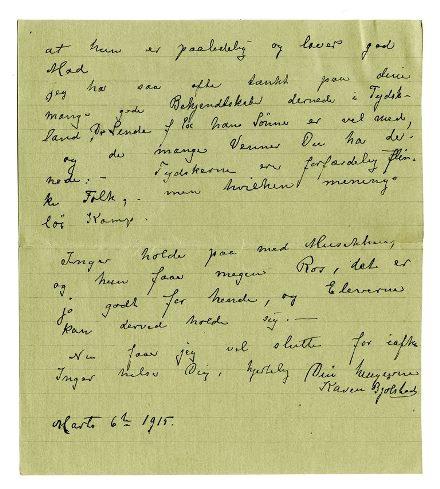 at hun er paalidelig og laver god
Mad
jeg har saa ofte tænkt paa dine
mange gode Bekjendtskab dernede i Tydsk-
land, Dr Linde f Ex hans Sønner er vel med,
og de mange Venner Du har der-
nede: - Tydskerne er forfærdelig flin-
ke Folk, - men hvilken menings
løs Kamp.
Inger holder paa med Musikken,
og hun faar megen Ros, det er
jo godt for hende, og Eleverne
kan derved holde sig. —
Nu faar jeg vel slutte for i aften
Inger hilse Dig, hjertelig Din hengivne
Karen Bjølstad
Marts 6te 1915.